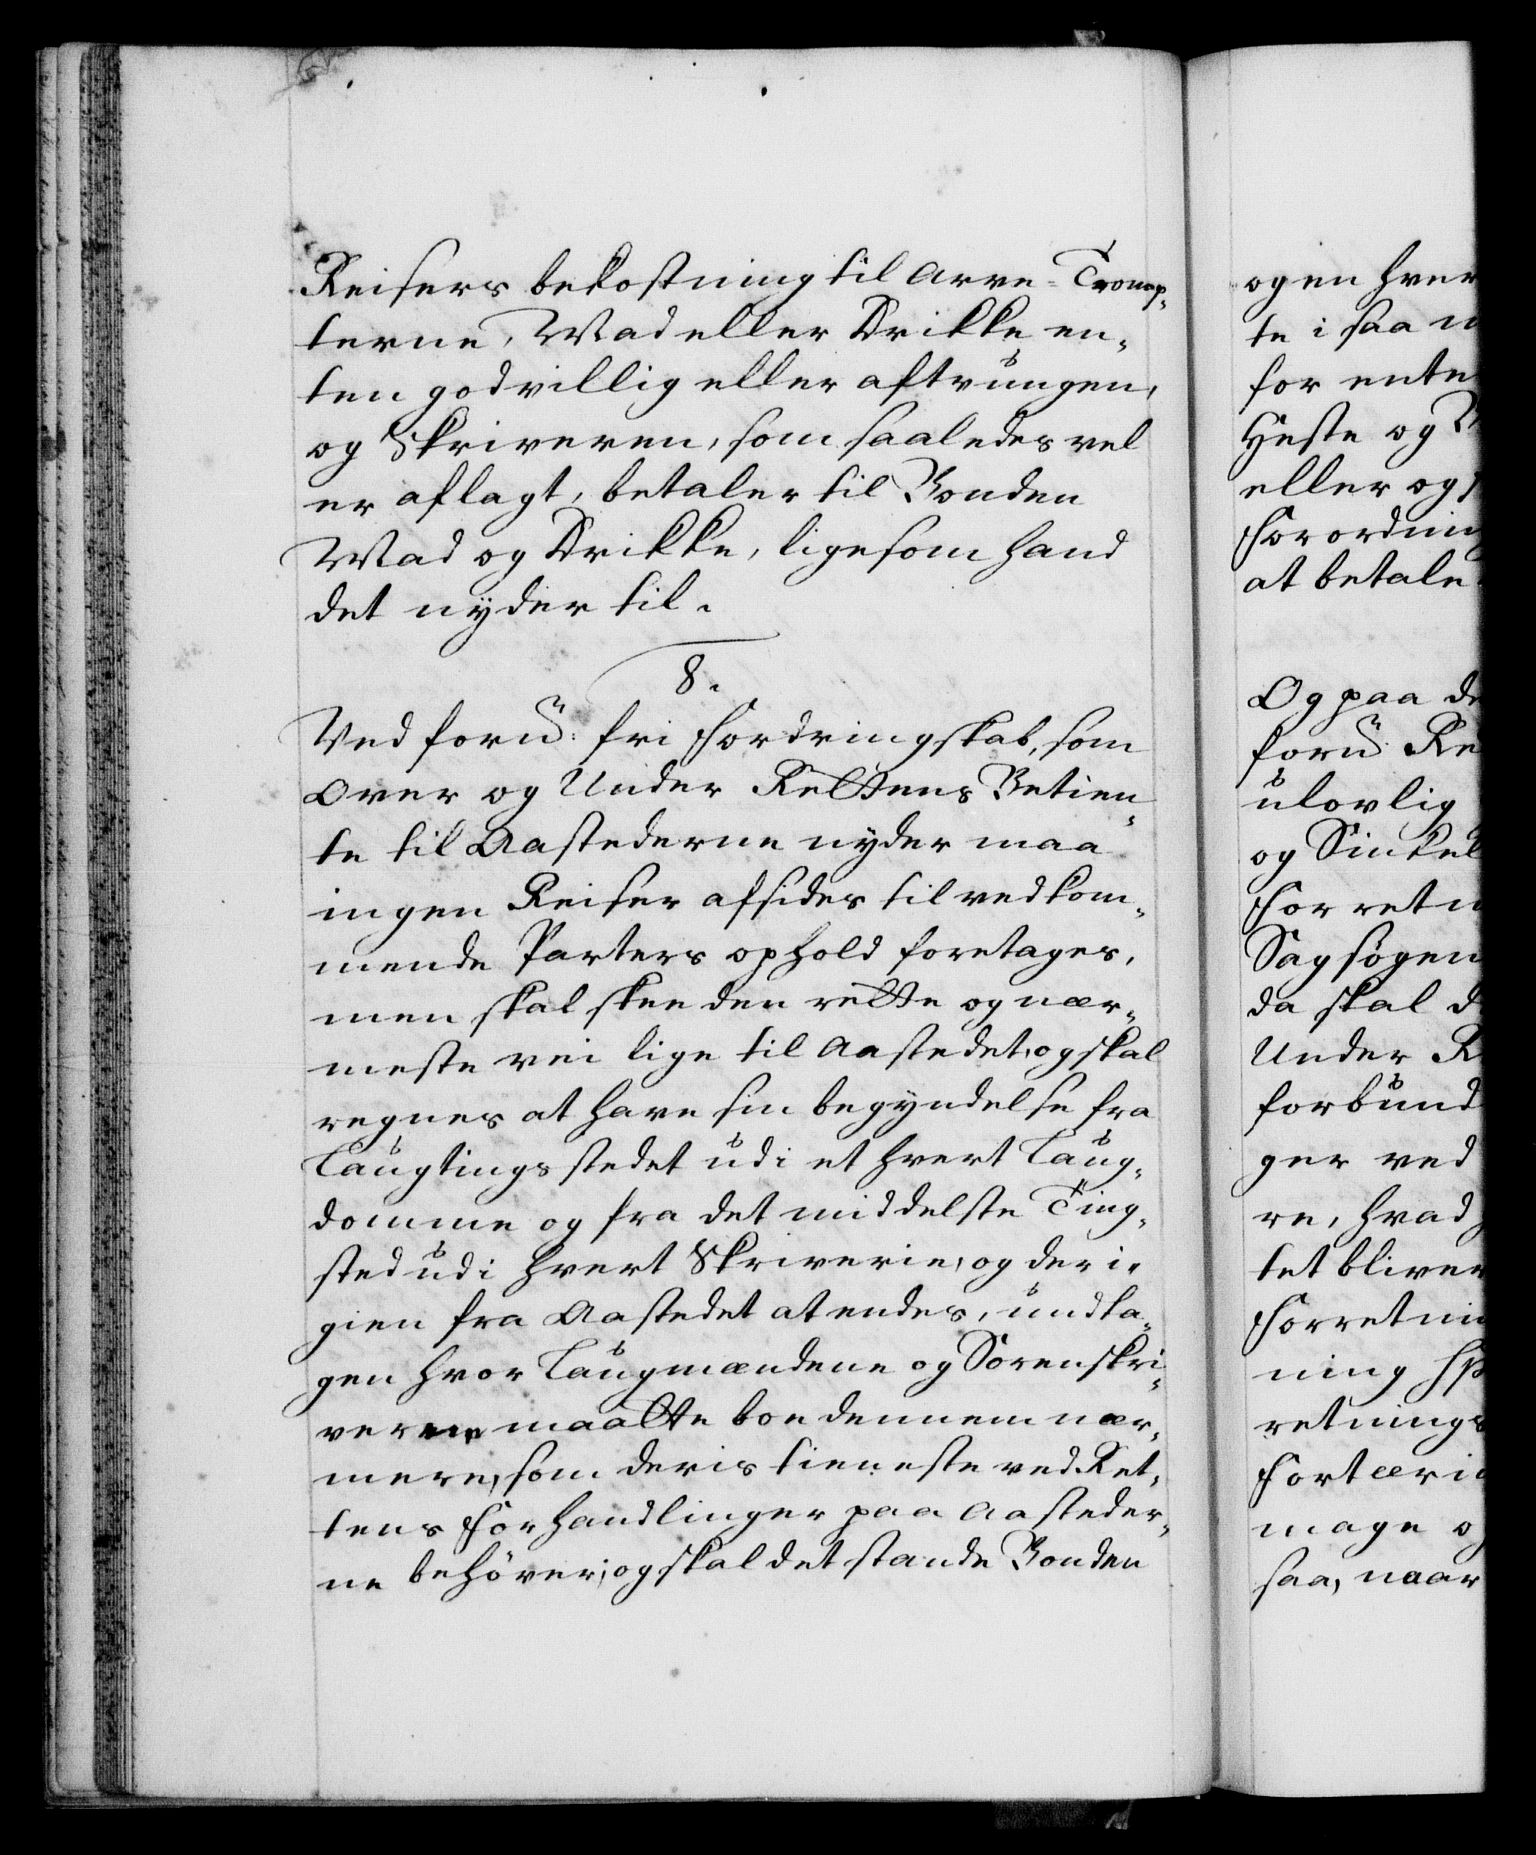 Reisers bekostning til Arve-Tomp-
terne, Mad eller Drikke en-
ten godvillig eller aftrungen,
og Skriveren, som saaledes vel
er aflagt, betaler til Bonden
Mad og Drikke, ligesom hand
det nyder til.
8.
Ved fornd: fri Fordringskab, som
Over og Under Rettens Betien-
te til Aastederne nyder maa
ingen Reiser afsides til vedkom-
mende Parters ophold foretages,
men skal skee den rette og nær-
meste vei lige til Aastedet, og skal
regnes at have sin begyndelse fra
Laugtings stedet udi et hvert Laug-
domme og fra det middelste Ting-
sted udi hvert Skriverie, og der i-
gien fra Aastedet at endes, undta-
gen hvor Laugmændene og Sorenskri-
verne maatte boe dennem nær-
mere, som deris tieneste ved Ret-
tens Forhandlinger paa Aasteder-
ne behøver; og skal det stande Bonden
og en hver
te i saa
for ente
Heste og
eller og
Forordning
at betale
Og paa de
fornd: Re
ulovlig
og Vinkel
Forretn
Sagsøgen
da skal d
Under R
forbund
ger ved
re, hvad
tet bliver
Forretni
ning
retnings
Fortæri
mage o
saa, naar